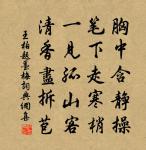 胸中含靜操
筆下走寒梢
一見孤山客
清香盡拆苞
王柏題墨梅詞典網集